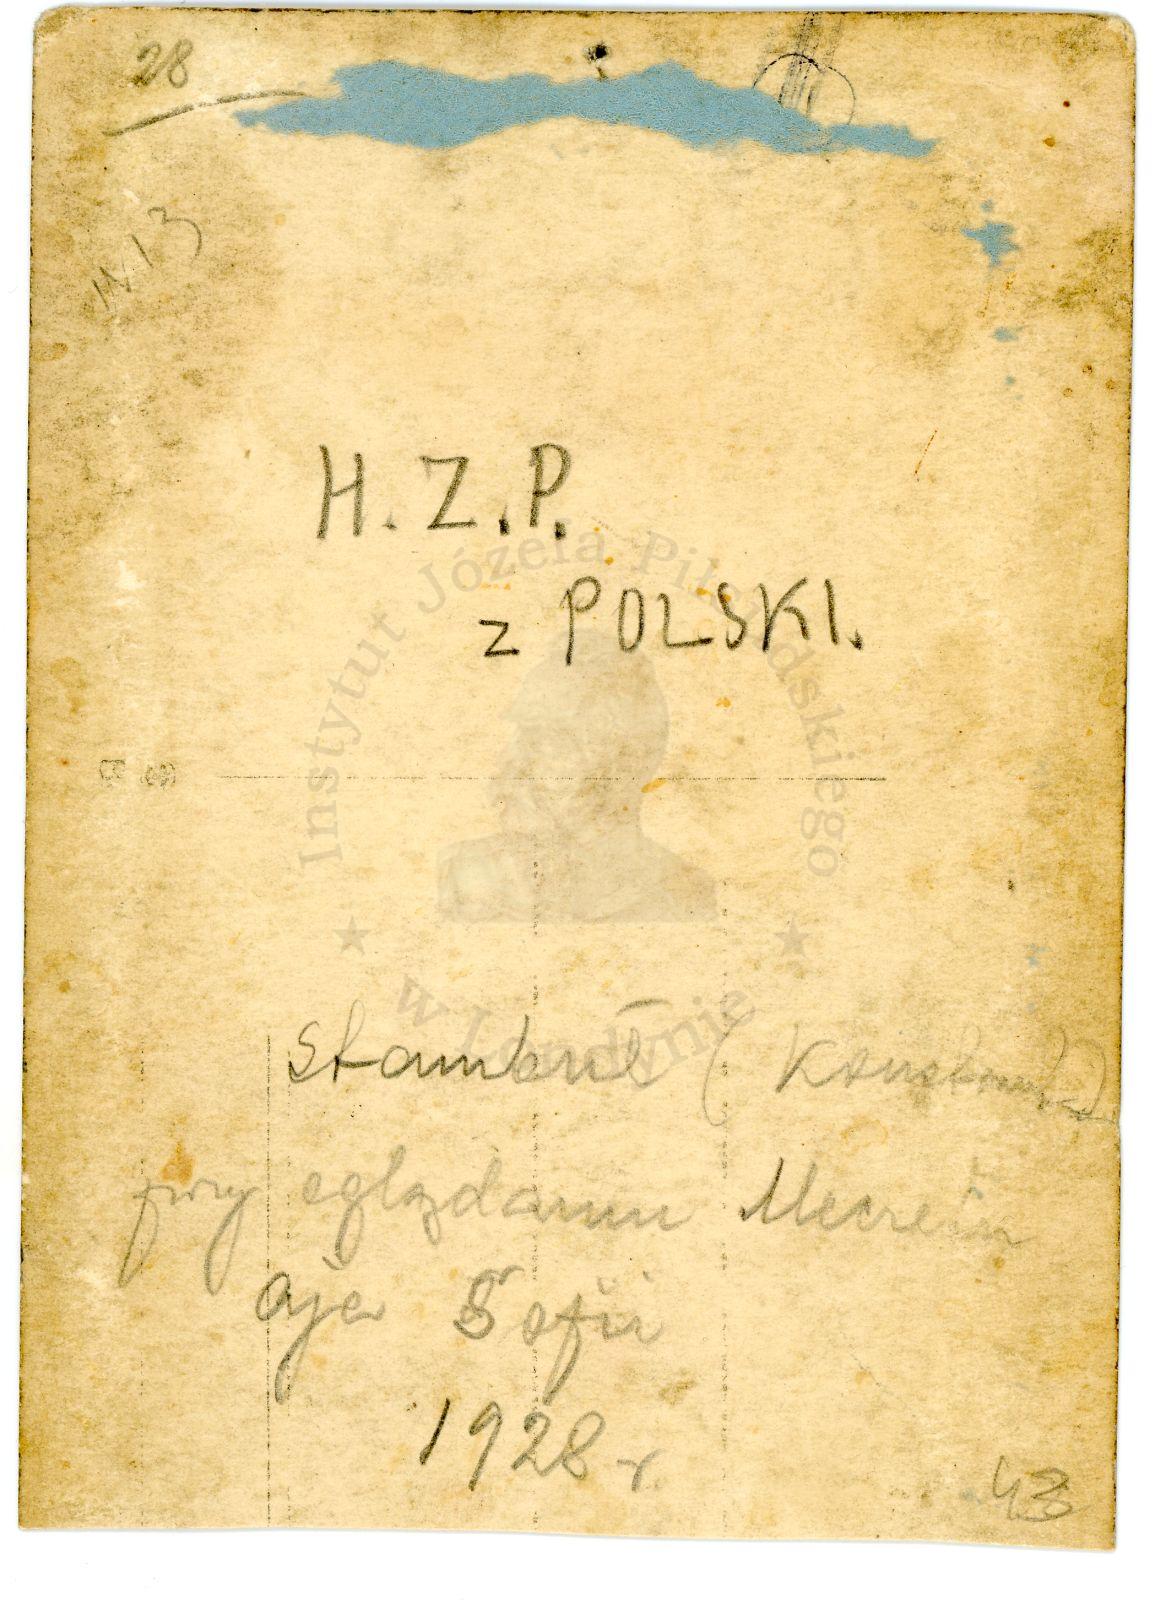 28
N 13
H. Z. P.
z POLSKI.
Instytut Józefa Piłsudskiego
w Londynie
Stambuł (
przy oglądaniu
Aja Sofii
1928 r
43